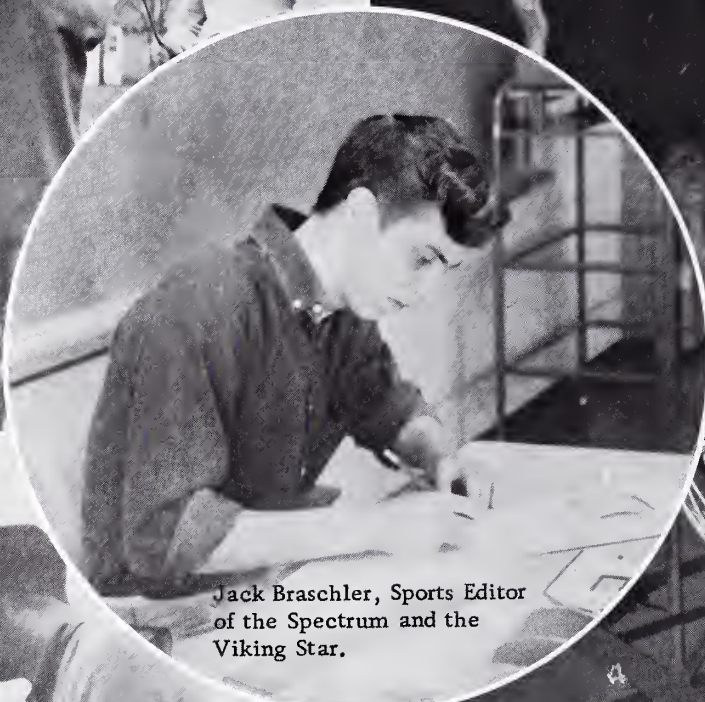 Jack Braschler, Sports Editor
of the Spectrum and the
Viking Star.